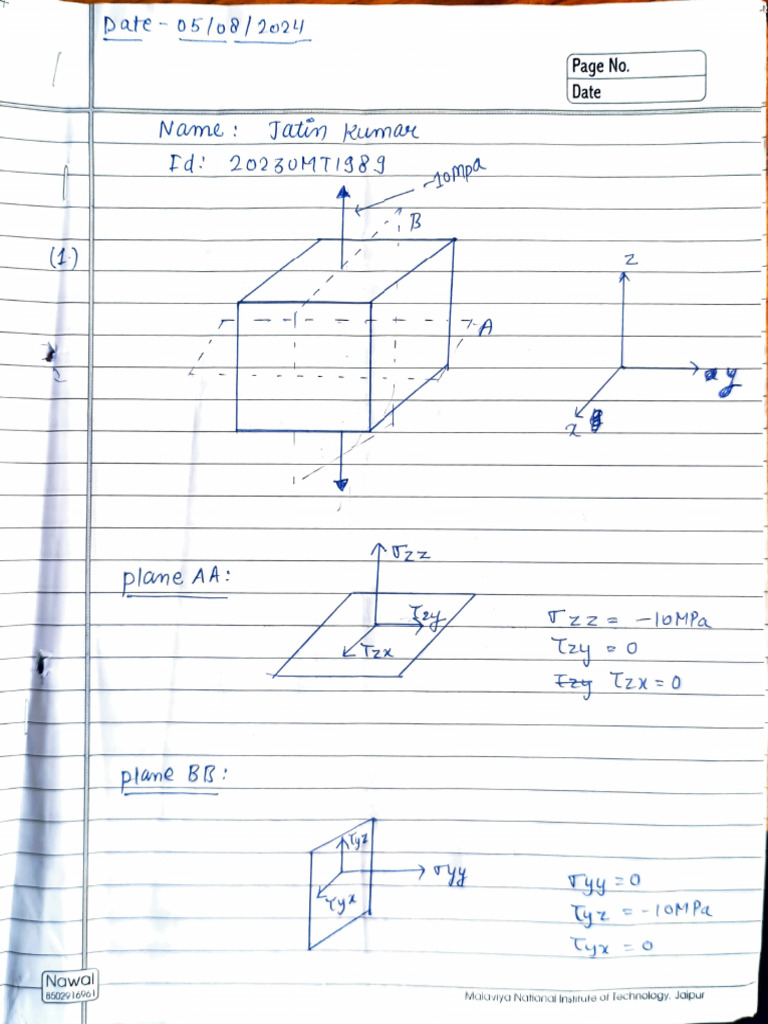 Date - 05/08/2024
Page No.
Date
Name: Jatin Kumar
Id: 2023UMT1989
-10Mpa
B
(1.)
z
A
y
x
plane AA:
σzz
τzy
τzx
σzz = -10MPa
τzy = 0
τzy τzx = 0
plane BB:
τyz
σyy
τyx
σyy = 0
τyz = -10MPa
τyx = 0
Nawal
8502916961
Malaviya National Institute of Technology, Jaipur